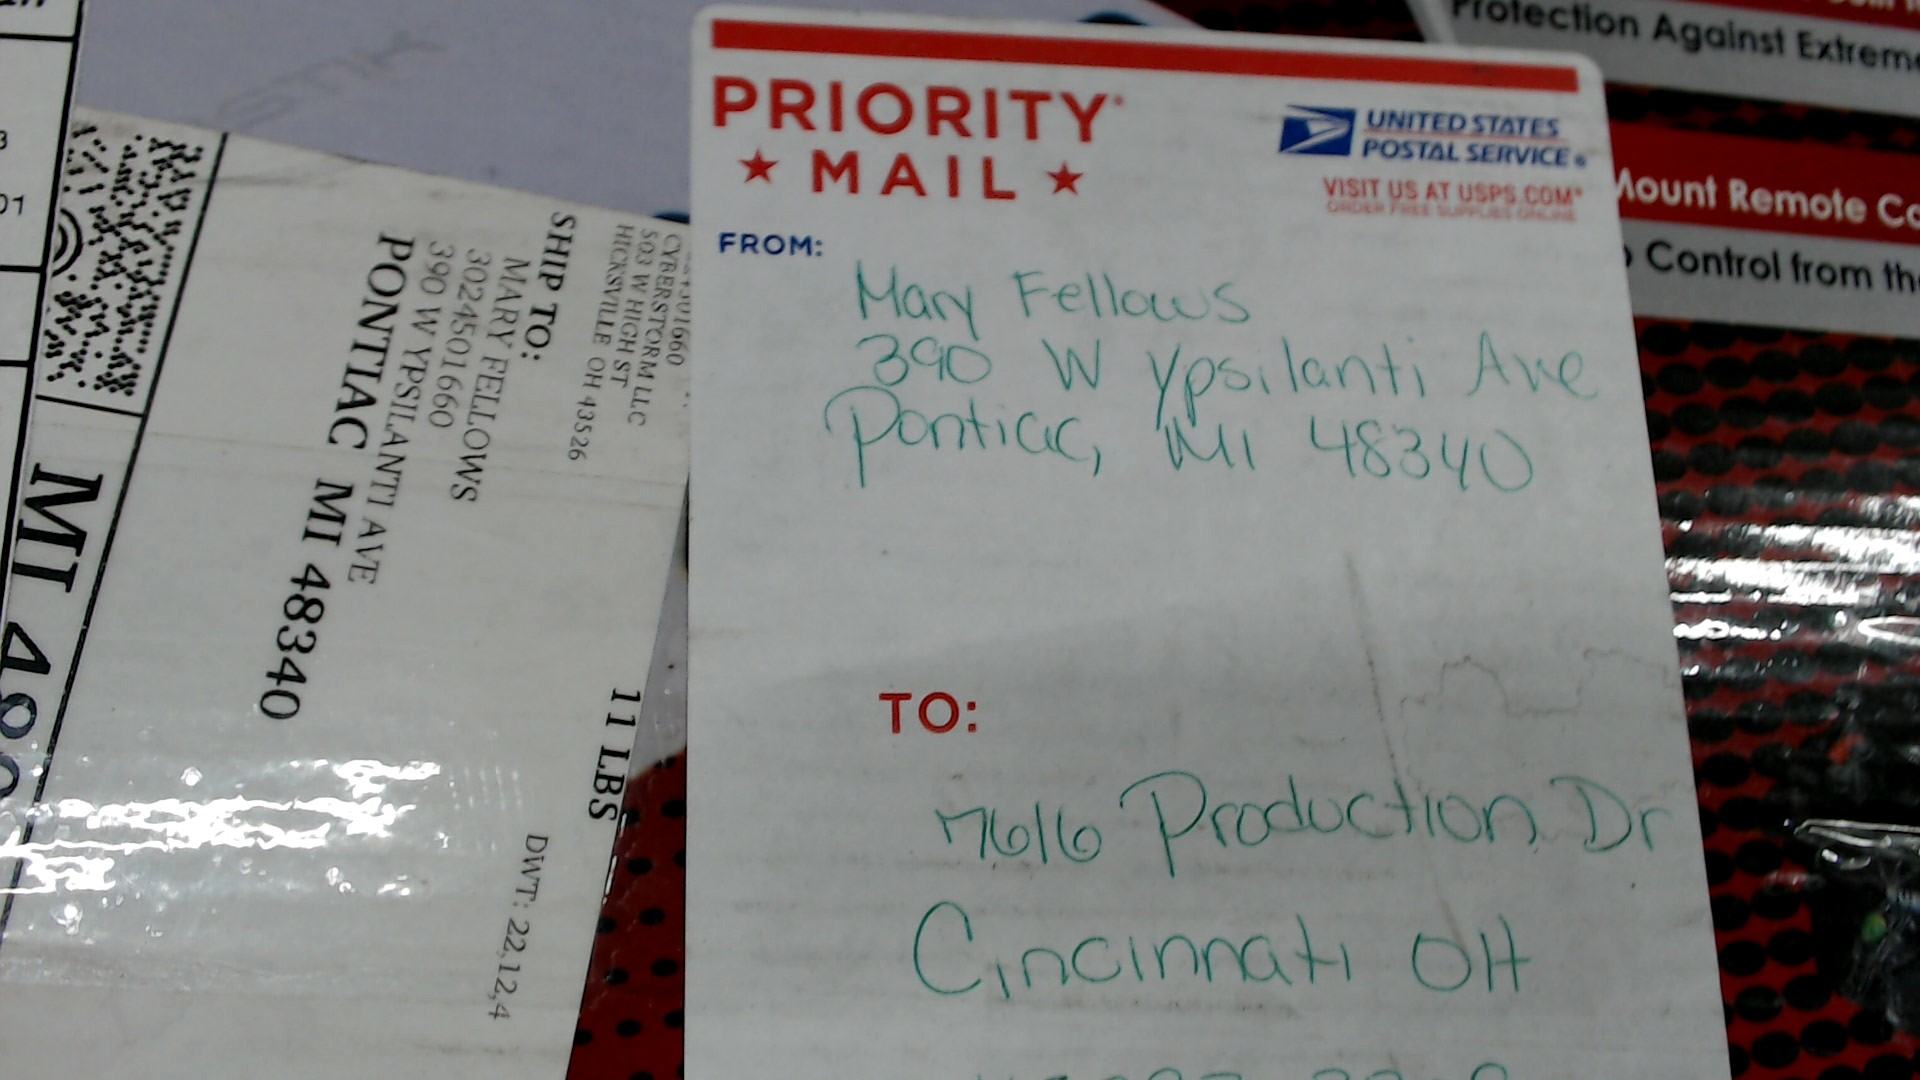 PRIORITY
★ MAIL ★
UNITED STATES
POSTAL SERVICE
VISIT US AT USPS.COM
ORDER FREE SUPPLIES ONLINE
FROM:
Mary Fellows
390 W Ypsilanti Ave
Pontiac, MI 48340
TO:
7616 Production Dr
Cincinnati OH
CYBERSTORM LLC
503 W HIGH ST
HICKSVILLE OH 43526
SHIP TO:
MARY FELLOWS
3024501660
390 W YPSILANTI AVE
PONTIAC MI 48340
11 LBS
DWT: 22,12,4
MI
Protection Against Extreme
Mount Remote
Control from